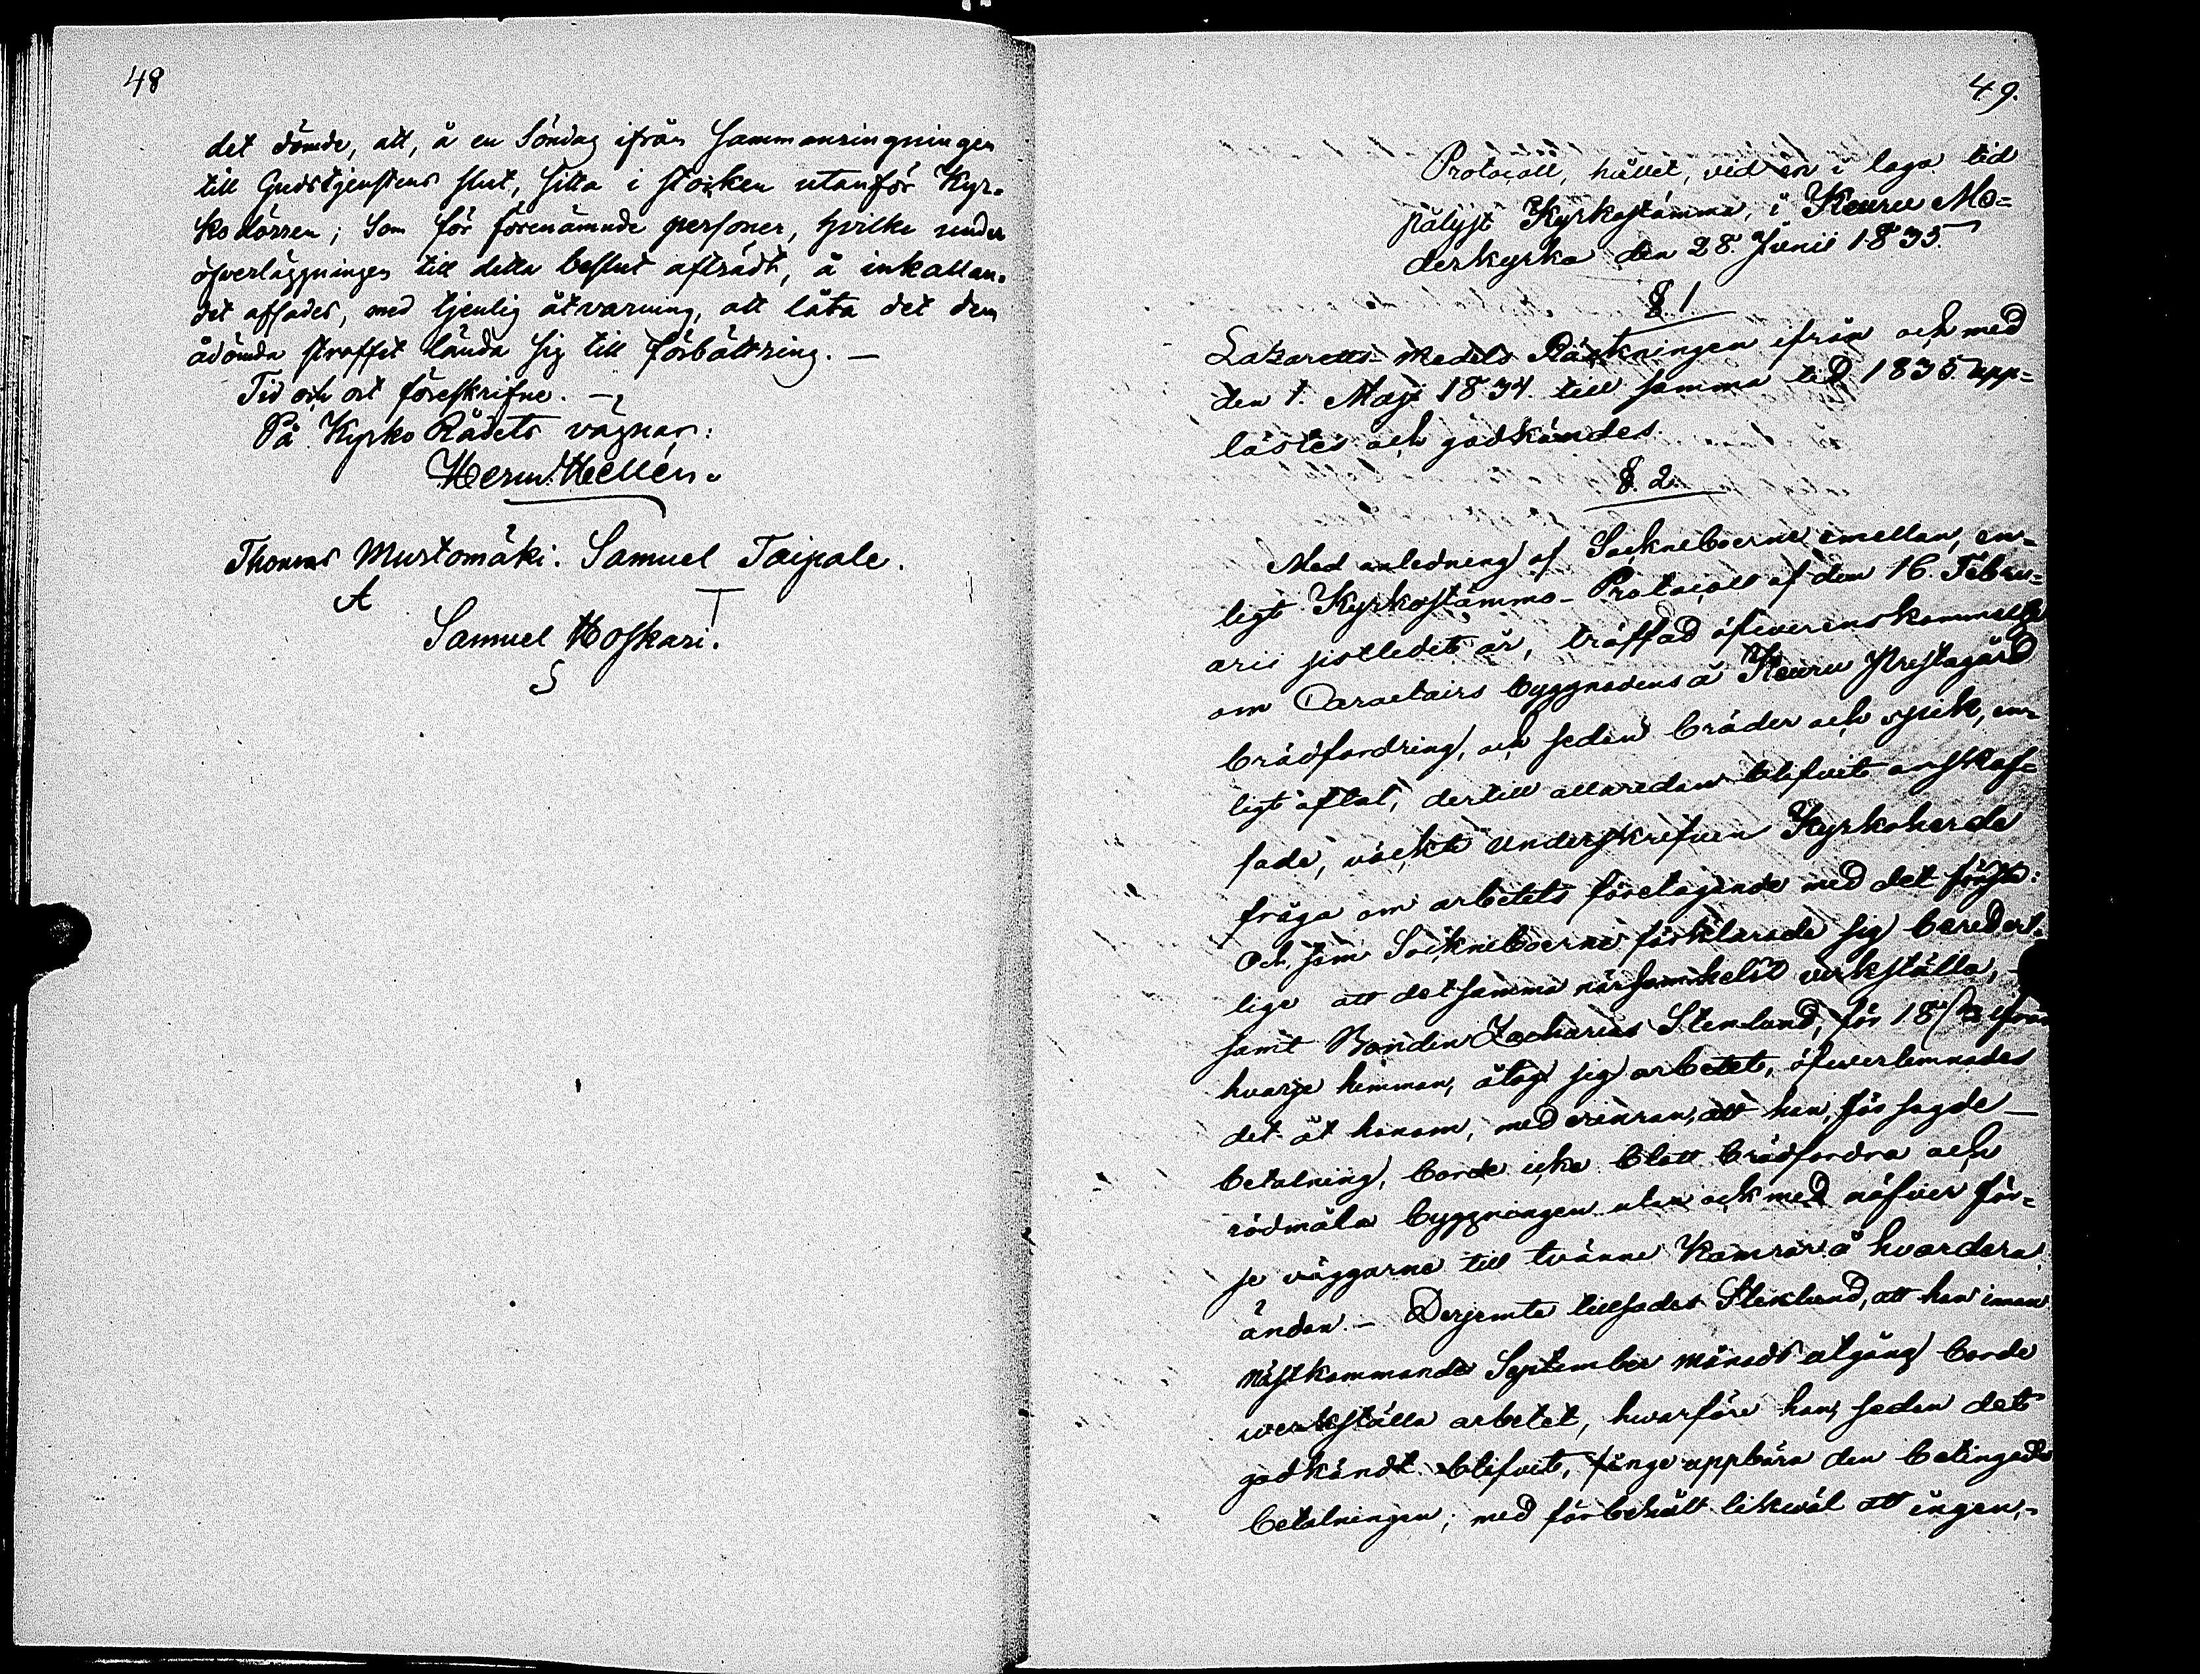 48
det dömde, att, å en Söndag ifrån Sammanringningen
till Gudstjenstens slut, sitta i stocken utanför Kyr-
kodörren; Som för förenämnde personer, hvilke under
öfverläggningen till detta beslut afträdt, å inkallan-
det afsades, med tjenlig åtvarning, att låta det dem
ådömda straffet lända sig till förbättring. —
Tid och ort föreskrifne. —
På Kyrko Rådets vägnar:
Herm. Hellén.
Thomas Mustomäki. Samuel Taipale.
A T
Samuel Hoskari.
S
49.
Protocoll, hållet, vid en i laga tid
pålyst Kyrkostämma, i Keuru Mo-
derkyrka den 28. Junii 1835.
§. 1.
Lazaretts-medels Räckningen ifrån och med
den 1. Maji 1834. till samma tid 1835. upp-
lästes och godkändes.
§. 2.
Med anledning af Sockneboerne emellan, en-
ligt Kyrkostämmo-Protocoll af den 16. Febru-
arii sistledit år, träffad öfwerenskommelse
om Caractairs byggnadens å Keuru Prestagård
brädfordring, och sedan bräder och spik, en-
ligt aftal, dertill allaredan blifvit anskaf-
fade, väckte Underskrefven Kyrkoherde
fråga om arbetets företagande med det första:
Och som Sockneboerne förklarade sig beredvil-
lige att detsamma närsomhelst verkställa, —
samt Bonden Zacharias Stenlund, för 18 ifrån
hvarje hemman, åtog sig arbetet, öfwerlemnades
det åt honom, med erinran, att han, för sagde —
betalning, borde icke blott brädfordra och
rödmåla byggningen utan ock med näfver för-
se väggarne till tvänne Kamrar å hvardera
ändan. — Derjemte tillsades Stenlund, att han innan
nästkommande September månads utgång borde
werkställa arbetet, hwarföre han, sedan det
godkändt blifvit, finge uppbära den betingade
betalningen; med förbehåll likwäl att ingen,-